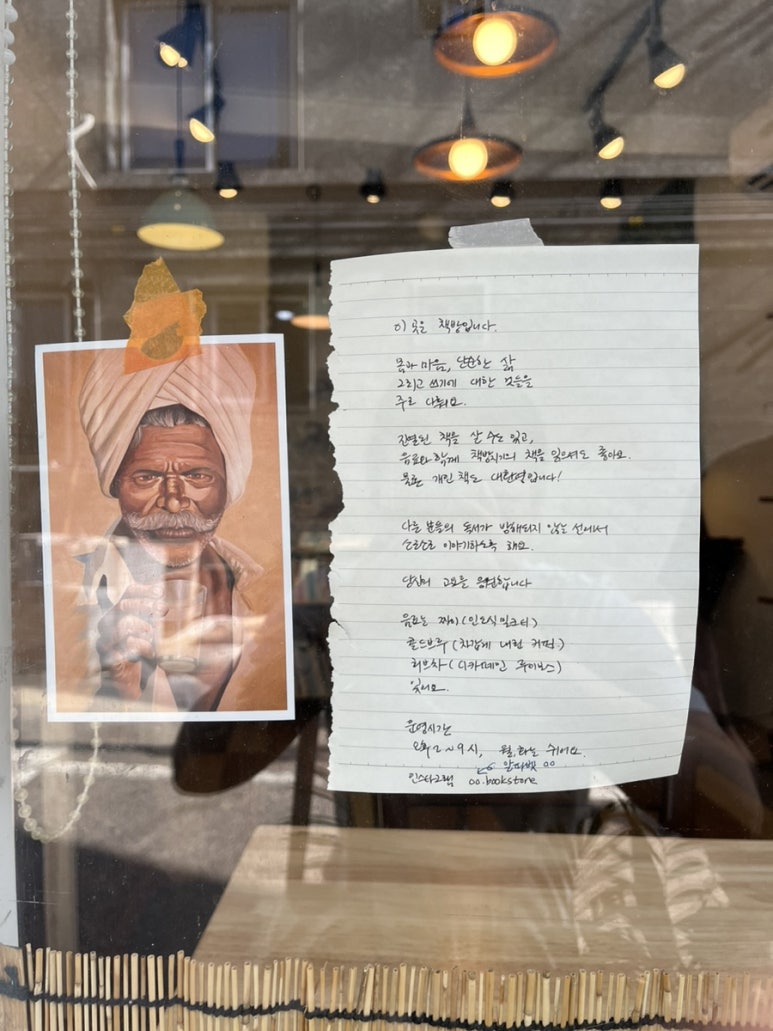 이 곳은 책방입니다.
몸과 마음, 단순한 삶
그리고 쓰기에 대한 것들을
주로 다뤄요.
진열된 책을 살 수도 있고,
음료와 함께 책방지기의 책을 읽으셔도 좋아요.
물론 개인 책도 대환영입니다!
다른 분들의 독서가 방해되지 않는 선에서
소근소근 이야기하도록 해요.
당신의 고요를 응원합니다
음료는 짜이(인도식 밀크티)
콜드브루(차갑게 내린 커피)
허브차(디카페인 루이보스)
있어요.
운영시간
오후 2~9시, 월,화는 쉬어요.
알파벳 oo
인스타그램 oo.bookstore